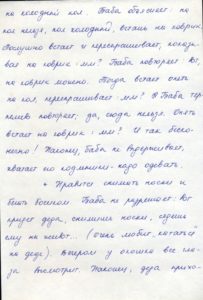 на холодный пол. Баба объясняет: на
пол нельзя, пол холодный, встань на коврик.
Послушно встает и переспрашивает, показы-
вая на коврик: мм? Баба повторяет: да,
на коврик можно. Тогда встает опять
на пол, переспрашивает: мм? А Баба тер-
пеливо повторяет: да, сюда нельзя. Опять
встает на коврик: мм? И так беско-
нечно! Наконец, баба не выдерживает,
хватает и одевать.
+ Нравится снимать носки и
быть босиком. Баба не разрешает. Вот
придет деда, снимешь носки, сядешь
ему на живот... (очень любит кататься
на деде). Вечером у окошка все гла-
за высмотрит. Наконец, деда прихо-